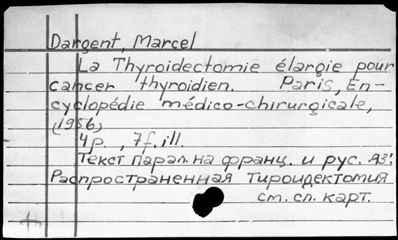 Dargent, Marcel
La Thyroidectomie élargie pour
cancer thyroidien. Paris, En-
cyclopédie médico-chirurgicale,
(1956)
4p., 7f. ill.
Текст парал. на франц. и рус. яз.
Распространенная тироидектомия
см. сл. карт.